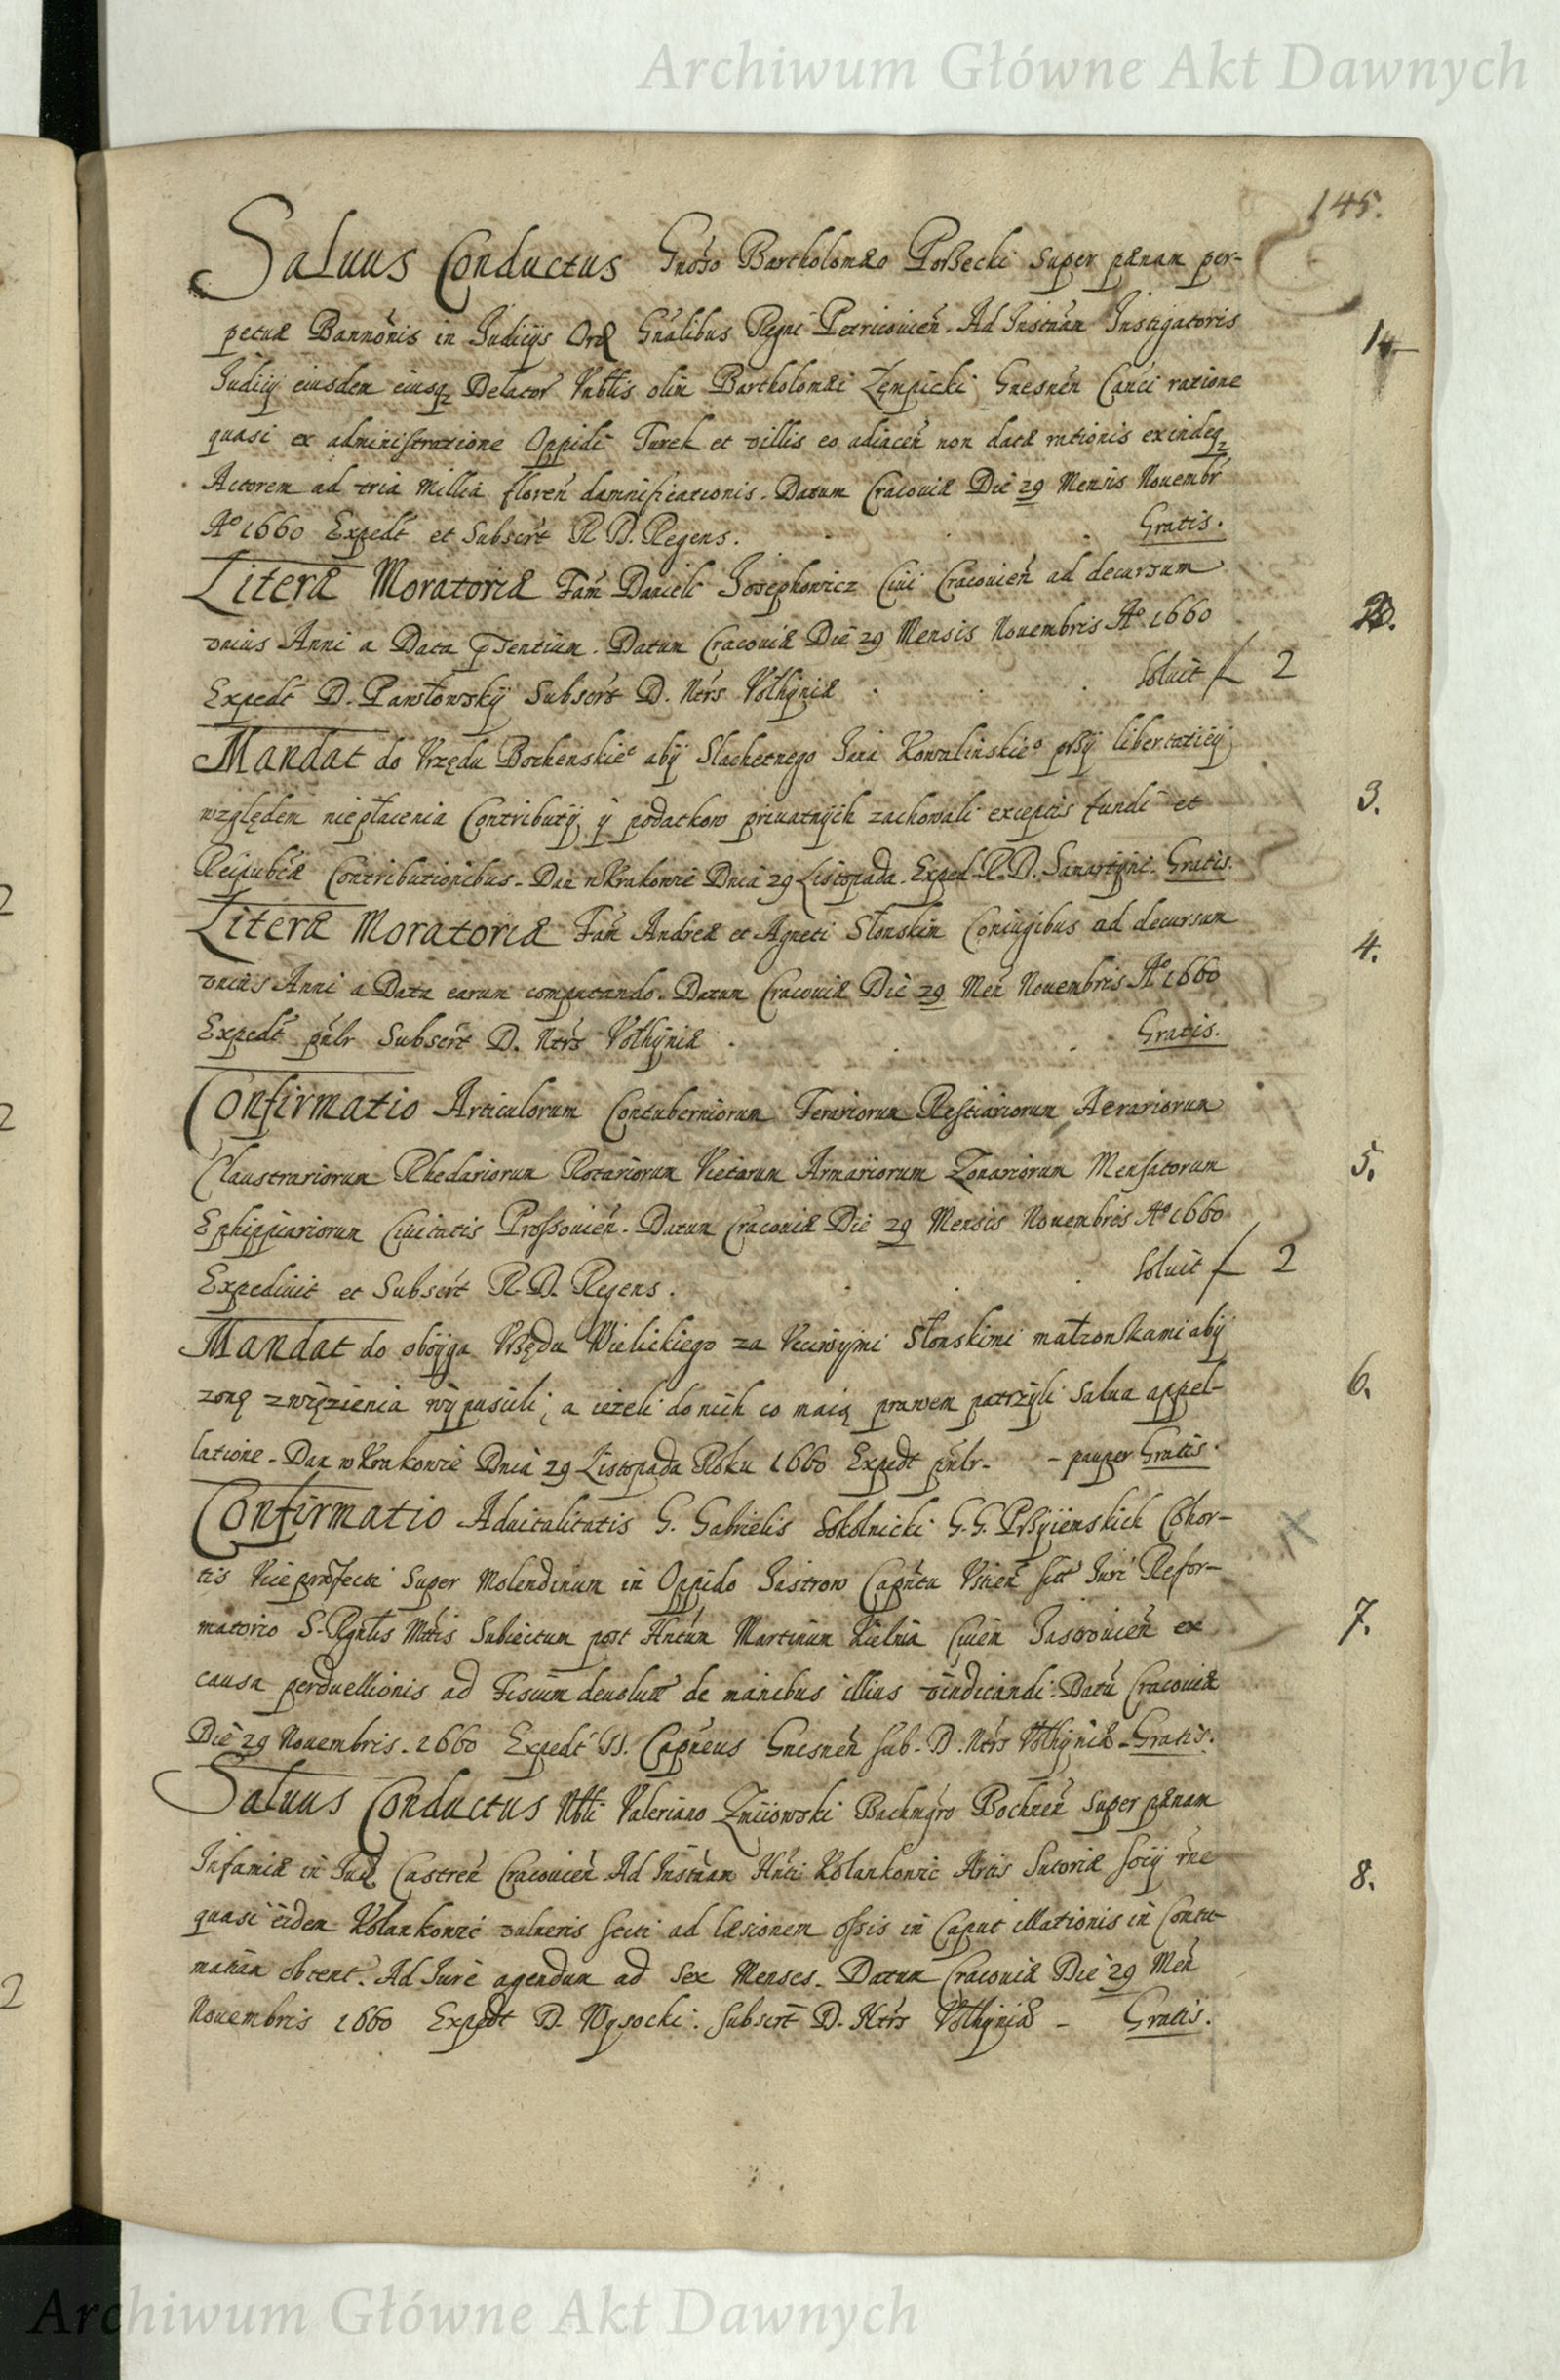 Archiwum Główne Akt Dawnych
145.
Saluus Conductus Gnoso Bartholomæo Porßecki super pænam per-
petuæ Bannonis in Judicijs Ord Gnalibus Regni Petricouien. Ad Instan Instigatoris
Judicij eiusdem eiusq Delator Nobilis olim Bartholomæi Zempicki Gnesnen Canci ratione
quasi ex administratione Oppidi Turek et villis eo adiacen non datæ rationis exindeq
Actorem ad tria Millia floren damnificationis. Datum Cracouiæ Die 29 Mensis Nouembr
Aº 1660 Expedt et Subscrt R D. Regens. Gratis.
1
Literæ Moratoriæ Fam Danieli Josephowicz Ciui Cracouien ad decursum
vnius Anni a Data præsentium. Datum Cracouiæ Die 29 Mensis Nouembris Aº 1660
Expedt D. Pawłowskÿ Subscrt D. Ntrs Vołhÿniæ Soluit f 2
2.
Mandat do Vrzędu Bochenskieº abÿ Slachetnego Jana Kowalinskieº prßÿ libertatieÿ
względem niepłacenia Contributÿ ÿ podatkow priuatnÿch zachowali exceptis fundi et
Reipubcæ Contributionibus. Dan w Krakowie Dnia 29 Listopada. Exped. R. D. Gratis.
3.
Literæ Moratoriæ Fam Andreæ et Agneti Słonskim Coniugibus ad decursum
vnius Anni a Data earum computando. Datum Cracouiæ Die 29 Men Nouembris Aº 1660
Expedt pnlr Subscrt D. Ntrs Vołhÿniæ Gratis.
4.
Confirmatio Articulorum Contuberniorum Ferariorum Restiariorum Aerariorum
Claustrariorum Rhedariorum Rotariorum Vietorum Armariorum Zonariorum Mensatorum
Ephippiariorum Ciuitatis Proßouien. Datum Cracouiæ Die 29 Mensis Nouembris Aº 1660
Expediuit et Subscrt R. D. Regens. Soluit f 2
5.
Mandat do oboÿga Vrßędu Wielickiego za Vcciwÿmi Słonskimi małzonkami abÿ
zonę zwięzienia wÿpuscili, a iezeli do nich co maią prawem patrzÿli salua appel-
latione. Dan w Krakowie Dnia 29 Listopada Roku 1660 Expedt pnlr - pauper Gratis.
6.
Confirmatio Aduitalitatis G. Gabrielis Sokolnicki G. G. Cohor-
tis Viceprefecti super Molendinum in Oppido Jastrow Capntu Vscien sitt Juri Refor-
matorio S. Rgalis Mttis Subiectum post Hntum Martinum Kielnia Ciuem Jastrouien ex
causa perduellionis ad Fiscum deuolutt de manibus illius vindicandi. Datu Cracouiæ
Die 29 Nouembris. 1660 Expedt Capneus Gnesnen sub. D. Ntrs Vołhÿniæ - Gratis.
7.
Saluus Conductus Nbli Valeriano Zmiiowski Bachmgro Bochnen super pænam
Infamiæ in Jud Castren Cracouien Ad Instnam Hnti Kolankowic Artis Sutoriæ socij rne
quasi eidem Kolankowic vulneris secti ad læsionem ossis in Caput illationis in Contu-
matiam obtent. Ad Jure agendum ad sex Menses. Datum Cracouiæ Die 29 Men
Nouembris 1660 Expedt D. Wysocki. Subscrt D. Ntrs Vołhÿniæ - Gratis.
8.
Archiwum Główne Akt Dawnych